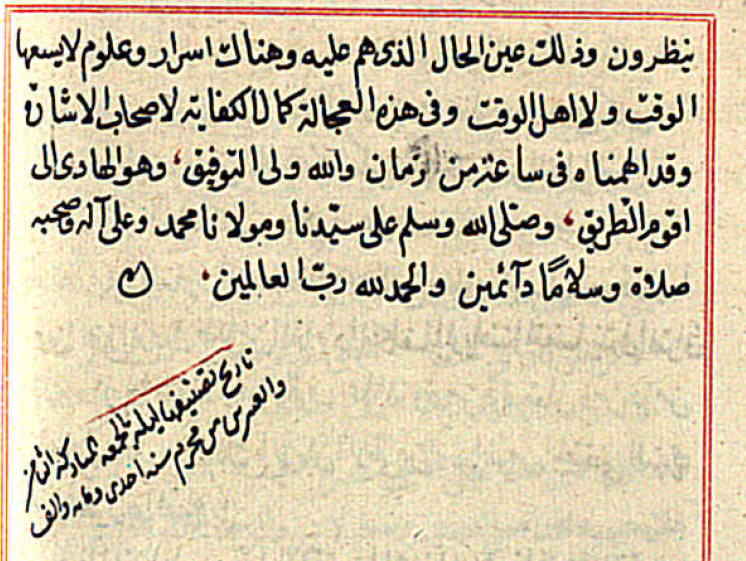 ينظرون وذلك عين الحال الذى هم عليه وهناك اسرار وعلوم لا يسعها
الوقت ولا اهل الوقت وفى هذه العجالة كمال الكفاية لاصحاب الاشارة
وقد الهمناه فى ساعة من الزمان والله ولى التوفيق، وهو الهادى الى
اقوم الطريق، وصلى الله وسلم على سيّدنا ومولانا محمد وعلى آله وصحبه
صلاة وسلامًا دآئمين والحمد لله ربّ العالمين.
تاريخ تصنيفها ليلة الجمعه المباركه الثامن
والعشرين من محرم سنه احدى ومايه والف